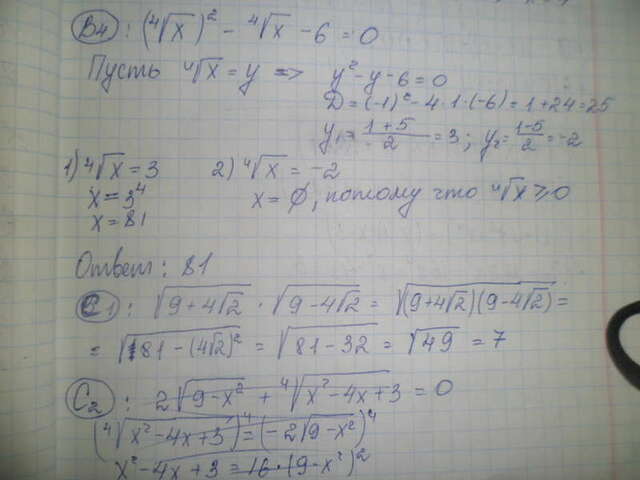 В4: (⁴√x)² - ⁴√x - 6 = 0
Пусть ⁴√x = y => y² - y - 6 = 0
D = (-1)² - 4·1·(-6) = 1 + 24 = 25
y₁ = (1+5)/2 = 3; y₂ = (1-5)/2 = -2
1) ⁴√x = 3 2) ⁴√x = -2
x = 3⁴ x = ∅, потому что ⁴√x ≥ 0
x = 81
Ответ: 81
C1: √(9+4√2) · √(9-4√2) = √((9+4√2)(9-4√2)) =
= √(81-(4√2)²) = √(81-32) = √49 = 7
C2: 2√(9-x²) + ⁴√(x²-4x+3) = 0
(⁴√(x²-4x+3))⁴ = (-2√(9-x²))⁴
x²-4x+3 = 16·(9-x²)²